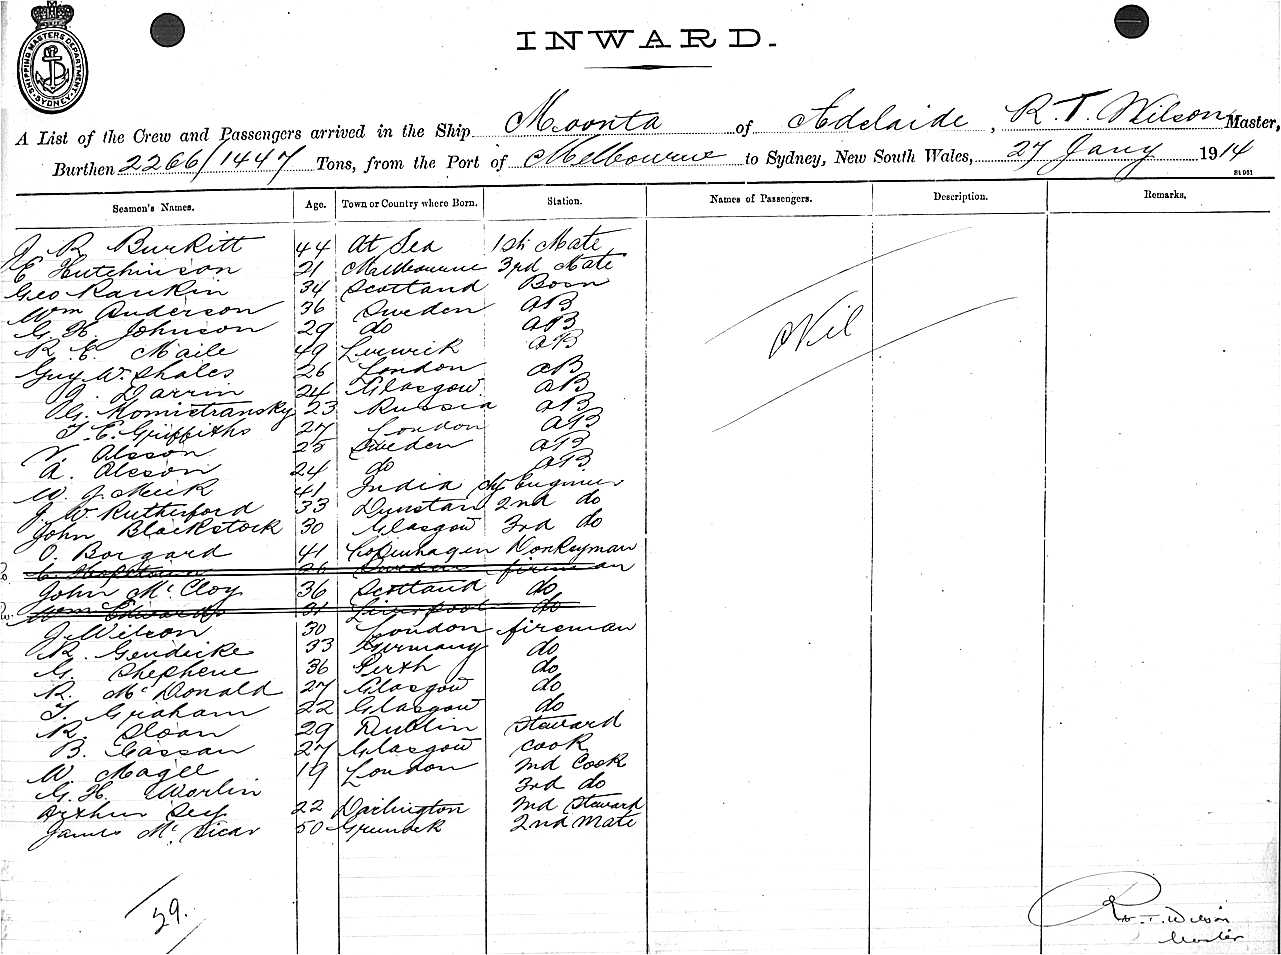 SHIPPING MASTERS DEPARTMENT SYDNEY
INWARD.
A List of the Crew and Passengers arrived in the Ship Moonta of Adelaide, R. T. Wilson Master,
Burthen 2266/1447 Tons, from the Port of Melbourne to Sydney, New South Wales, 27 Jany 1914
Seamen's Names. Age. Town or Country where Born. Station. Names of Passengers. Description. Remarks.
J R Burkitt 44 At Sea 1st Mate
E Hutchinson 21 Melbourne 3rd Mate
Geo Rankin 34 Scotland Bosn
Wm Anderson 36 Sweden AB
G. H. Johnson 29 do AB
R. E. Maile 49 Lerwick AB
Guy W. Shales 26 London AB
Darrin 24 Glasgow AB
G. Komistransky 23 Russia AB
T. E. Griffiths 27 London AB
V. Olsson 25 Sweden AB
A. Olsson 24 do AB
W. J. Meik 41 India Engineer
J. W. Rutherford 33 Dunstan 2nd do
John Blackstock 30 Glasgow 3rd do
O. Borgard 41 Copenhagen Donkeyman
26 Sweden fireman
John McCloy 36 Scotland do
Wm Edwards 31 Liverpool do
J. Wilson 30 London fireman
R. Gendicke 33 Germany do
G. Stephene 36 Perth do
R. McDonald 27 Glasgow do
T. Graham 22 Glasgow do
R. Sloan 29 Dublin Steward
B. Cassan 27 Glasgow Cook
W. Magee 19 London 2nd Cook
G. H. Worlin 3rd do
Arthur 22 Darlington 2nd Steward
James McVicar 50 Greenock 2nd Mate
Nil
29.
R. T. Wilson
Master